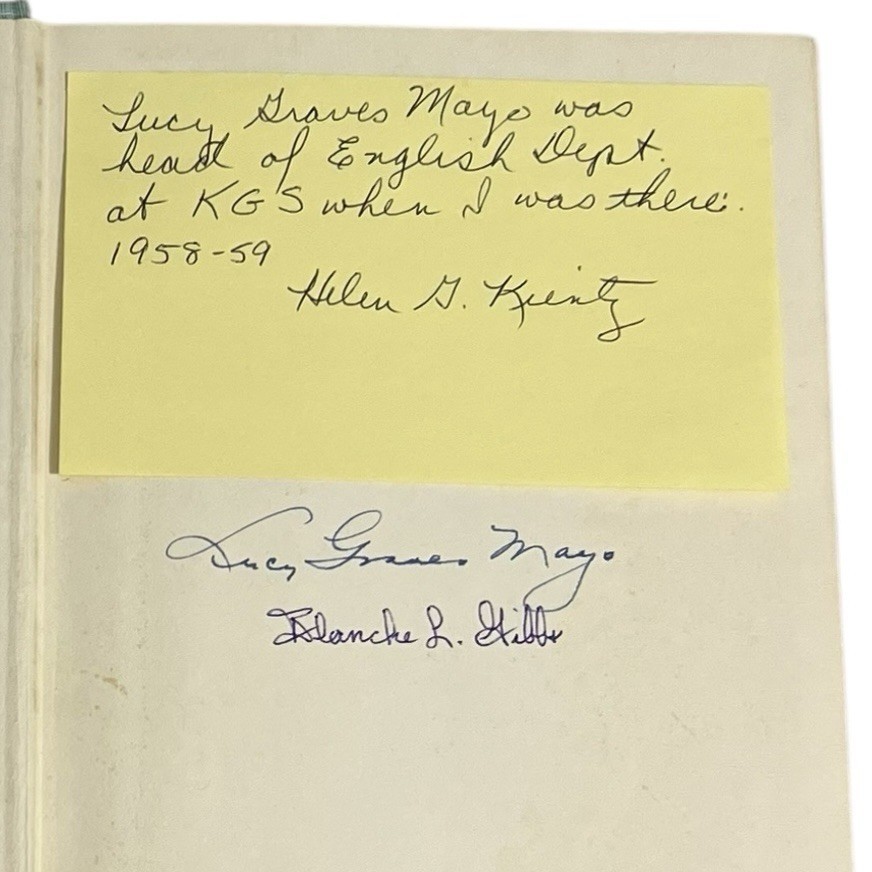 Lucy Graves Mayo was
head of English Dept.
at KGS when I was there.
1958-59
Helen G. Kientz
Lucy Graves Mayo
Blanche L. Gibbs